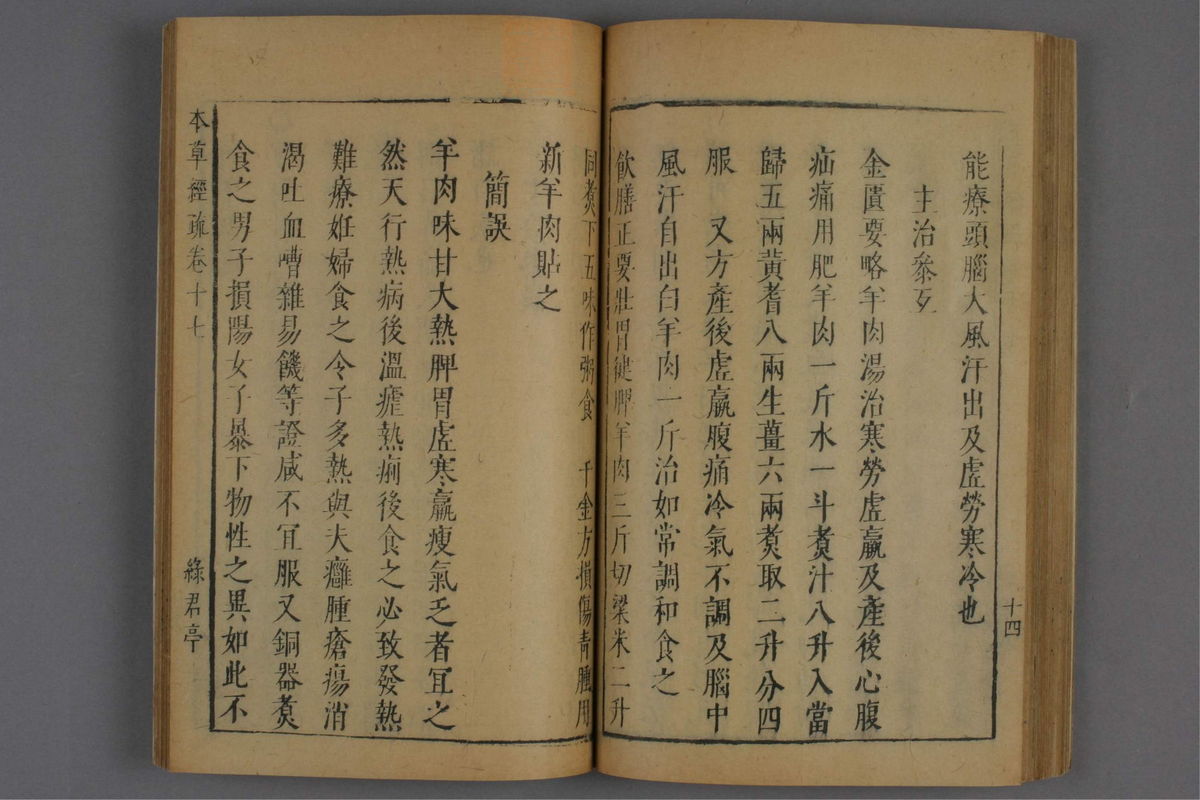 十四
能療頭腦大風汗出及虛勞寒冷也
主治參互
金匱要略羊肉湯治寒勞虛羸及產後心腹
疝痛用肥羊肉一斤水一斗煑汁八升入當
歸五兩黃耆八兩生薑六兩煑取二升分四
服　又方產後虛羸腹痛冷氣不調及腦中
風汗自出白羊肉一斤治如常調和食之
飲膳正要壯胃健脾羊肉三斤切粱米二升
同煑下五味作粥食　千金方損傷青腫用
新羊肉貼之
簡誤
羊肉味甘大熱脾胃虛寒羸瘦氣乏者宜之
然天行熱病後溫瘧熱痢後食之必致發熱
難療姙婦食之令子多熱與夫癰腫瘡瘍消
渴吐血嘈雜易饑等證咸不宜服又銅器煑
食之男子損陽女子暴下物性之異如此不
本草經疏卷十七
綠君亭